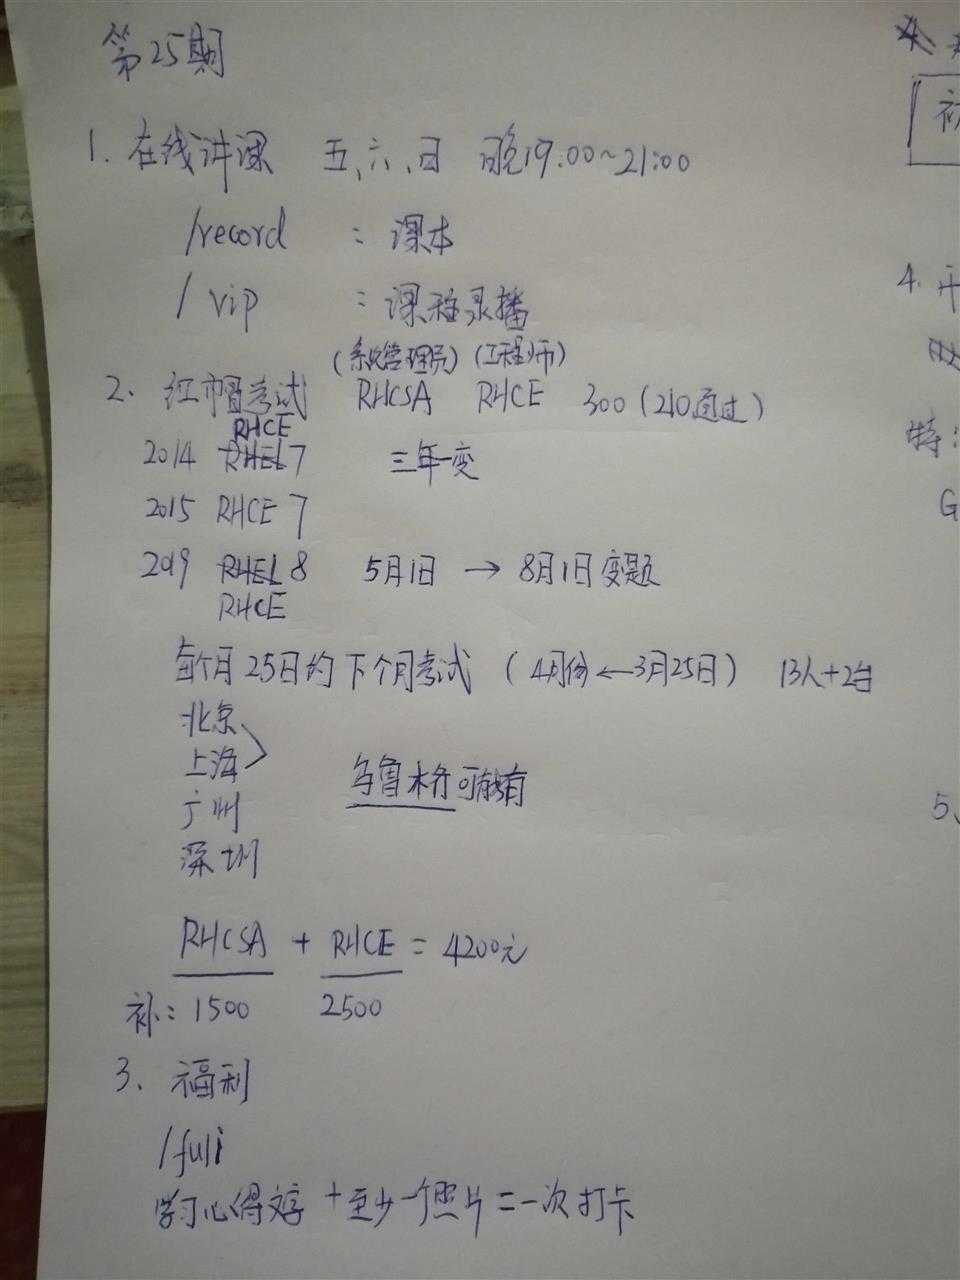 第25期
1. 在线讲课 五、六、日 晚19:00~21:00
/record : 课本
/vip : 课程录播
(系统管理员) (工程师)
2. 红帽考试 RHCSA RHCE 300 (210通过)
RHCE
2014 RHEL7 三年一变
2015 RHCE 7
2019 RHEL 8 5月1日 → 8月1日变题
RHCE
每个月25日约下个月考试 (4月份←3月25日) 13人+2台
北京
上海
广州
深圳
乌鲁木齐可能有
RHCSA + RHCE = 4200元
补: 1500 2500
3、福利
/fuli
学习心得文字 + 至少一个照片 = 一次打卡
初
4. 开
特:
G
5、